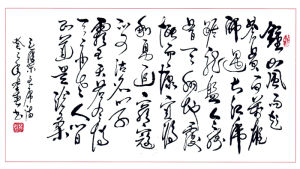 鍾山風雨起
蒼黃百萬雄
師過大江虎
踞龍盤今勝
昔天翻地覆
慨而慷宜將
剩勇追窮寇
不可沽名學
霸王天若有情
天亦老人間
正道是滄桑